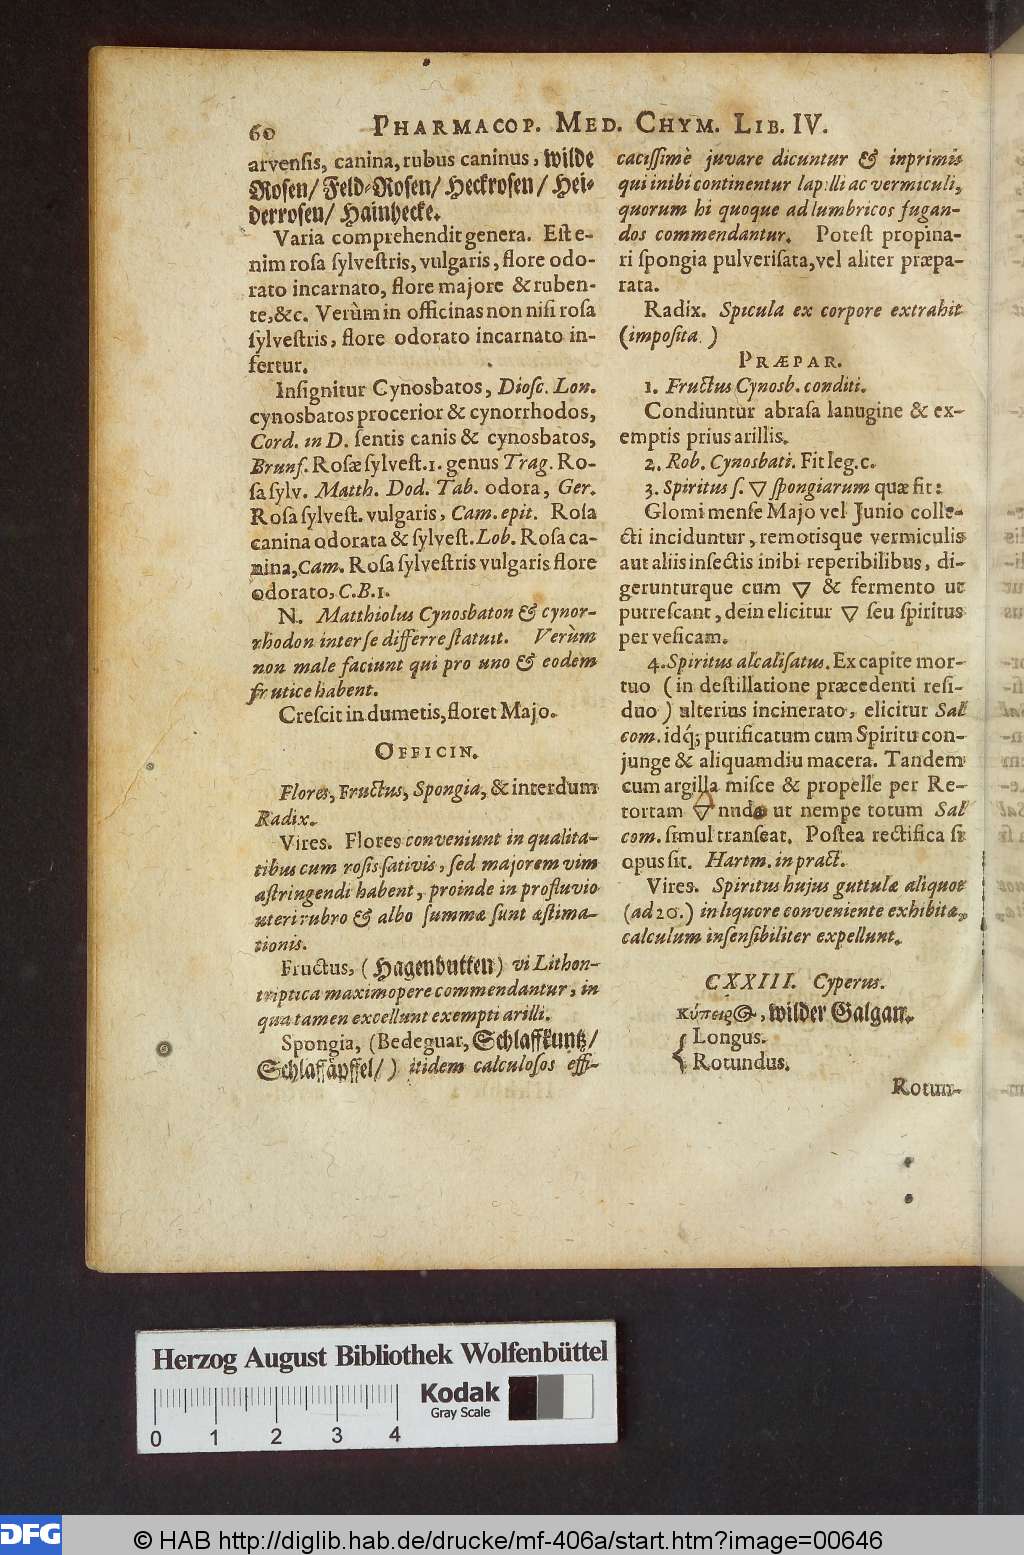 60
PHARMACOP. MED. CHYM. LIB. IV.
arvensis, canina, rubus caninus, wilde
Rosen/ Feld-Rosen/ Heckrosen/ Hei-
derrosen/ Hainhecke.
Varia comprehendit genera. Est e-
nim rosa sylvestris, vulgaris, flore odo-
rato incarnato, flore majore & ruben-
te, &c. Verùm in officinas non nisi rosa
sylvestris, flore odorato incarnato in-
fertur.
Insignitur Cynosbatos, Diosc. Lon.
cynosbatos procerior & cynorrhodos,
Cord. in D. sentis canis & cynosbatos,
Brunf. Rosæ sylvest. 1. genus Trag. Ro-
sa sylv. Matth. Dod. Tab. odora, Ger.
Rosa sylvest. vulgaris, Cam. epit. Rosa
canina odorata & sylvest. Lob. Rosa ca-
nina, Cam. Rosa sylvestris vulgaris flore
odorato, C.B.1.
N. Matthiolus Cynosbaton & cynor-
rhodon inter se differre statuit. Verùm
non male faciunt qui pro uno & eodem
frutice habent.
Crescit in dumetis, floret Majo.
OFFICIN.
Flores, Fructus, Spongia, & interdum
Radix.
Vires. Flores conveniunt in qualita-
tibus cum rosis sativis, sed majorem vim
astringendi habent, proinde in profluvio
uteri rubro & albo summæ sunt æstima-
tionis.
Fructus, (Hagenbutten) vi Lithon-
triptica maximopere commendantur, in
qua tamen excellunt exempti arilli.
Spongia, (Bedeguar, Schlaffkuntz/
Schlaffäpffel/) itidem calculosos effi-
cacissimè juvare dicuntur & inprimis
qui inibi continentur lapilli ac vermiculi,
quorum hi quoque ad lumbricos fugan-
dos commendantur. Potest propina-
ri spongia pulverisata, vel aliter præpa-
rata.
Radix. Spicula ex corpore extrahit
(imposita.)
PRÆPAR.
1. Fructus Cynosb. conditi.
Condiuntur abrasa lanugine & ex-
emptis prius arillis.
2. Rob. Cynosbati. Fit leg. c.
3. Spiritus s. 🜄 spongiarum quæ fit:
Glomi mense Majo vel Junio colle-
cti inciduntur, remotisque vermiculis
aut aliis insectis inibi reperibilibus, di-
gerunturque cum 🜄 & fermento ut
putrescant, dein elicitur 🜄 seu spiritus
per vesicam.
4. Spiritus alcalisatus. Ex capite mor-
tuo (in destillatione præcedenti resi-
duo) ulterius incinerato, elicitur Sal
com. idq; purificatum cum Spiritu con-
junge & aliquamdiu macera. Tandem
cum argilla misce & propelle per Re-
tortam 🜄 nudo ut nempe totum Sal
com. simul transeat. Postea rectifica si
opus sit. Hartm. in pract.
Vires. Spiritus hujus guttulæ aliquot
(ad 20.) in liquore conveniente exhibitæ,
calculum insensibiliter expellunt.
CXXIII. Cyperus.
κύπειρος, wilder Galgan.
{ Longus.
Rotundus.
Rotun-
Herzog August Bibliothek Wolfenbüttel
0 1 2 3 4
Kodak
Gray Scale
DFG
© HAB http://diglib.hab.de/drucke/mf-406a/start.htm?image=00646